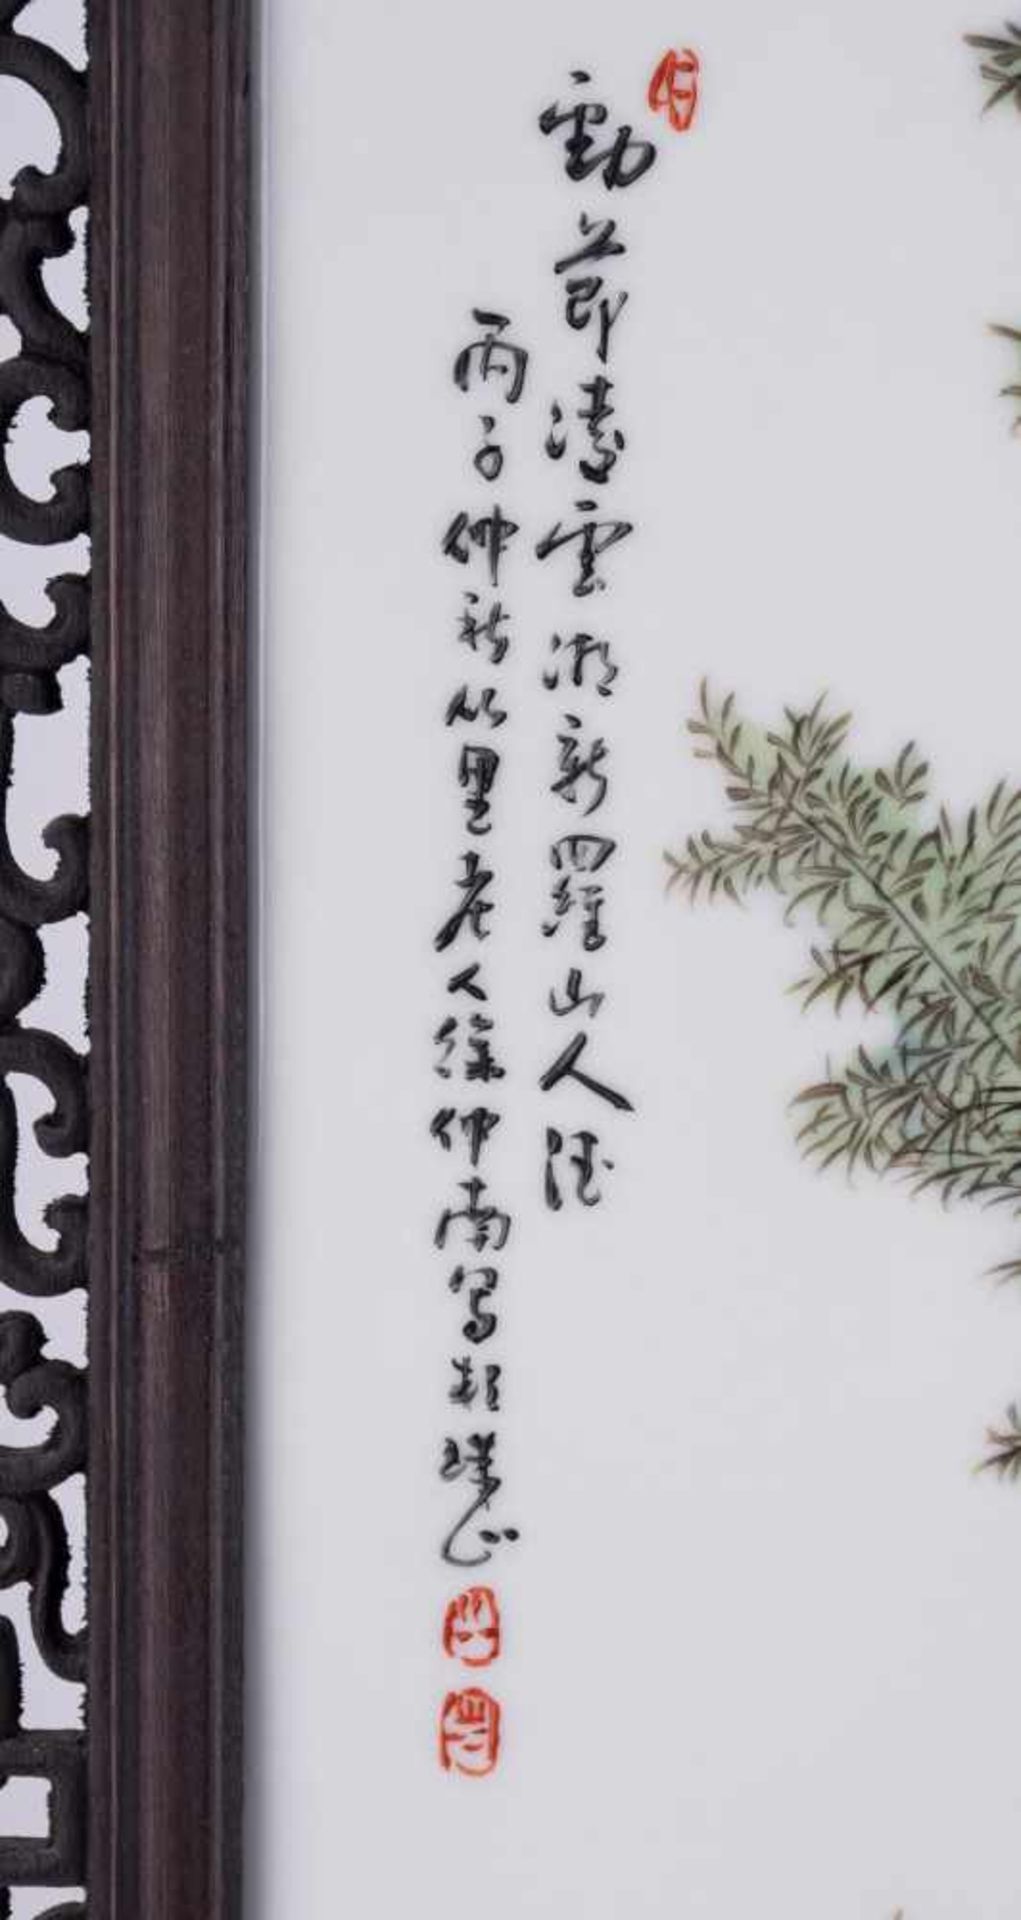 勁節凌雲溯新羅山人法
丙子仲秋竹里老人徐仲南寫於珠山